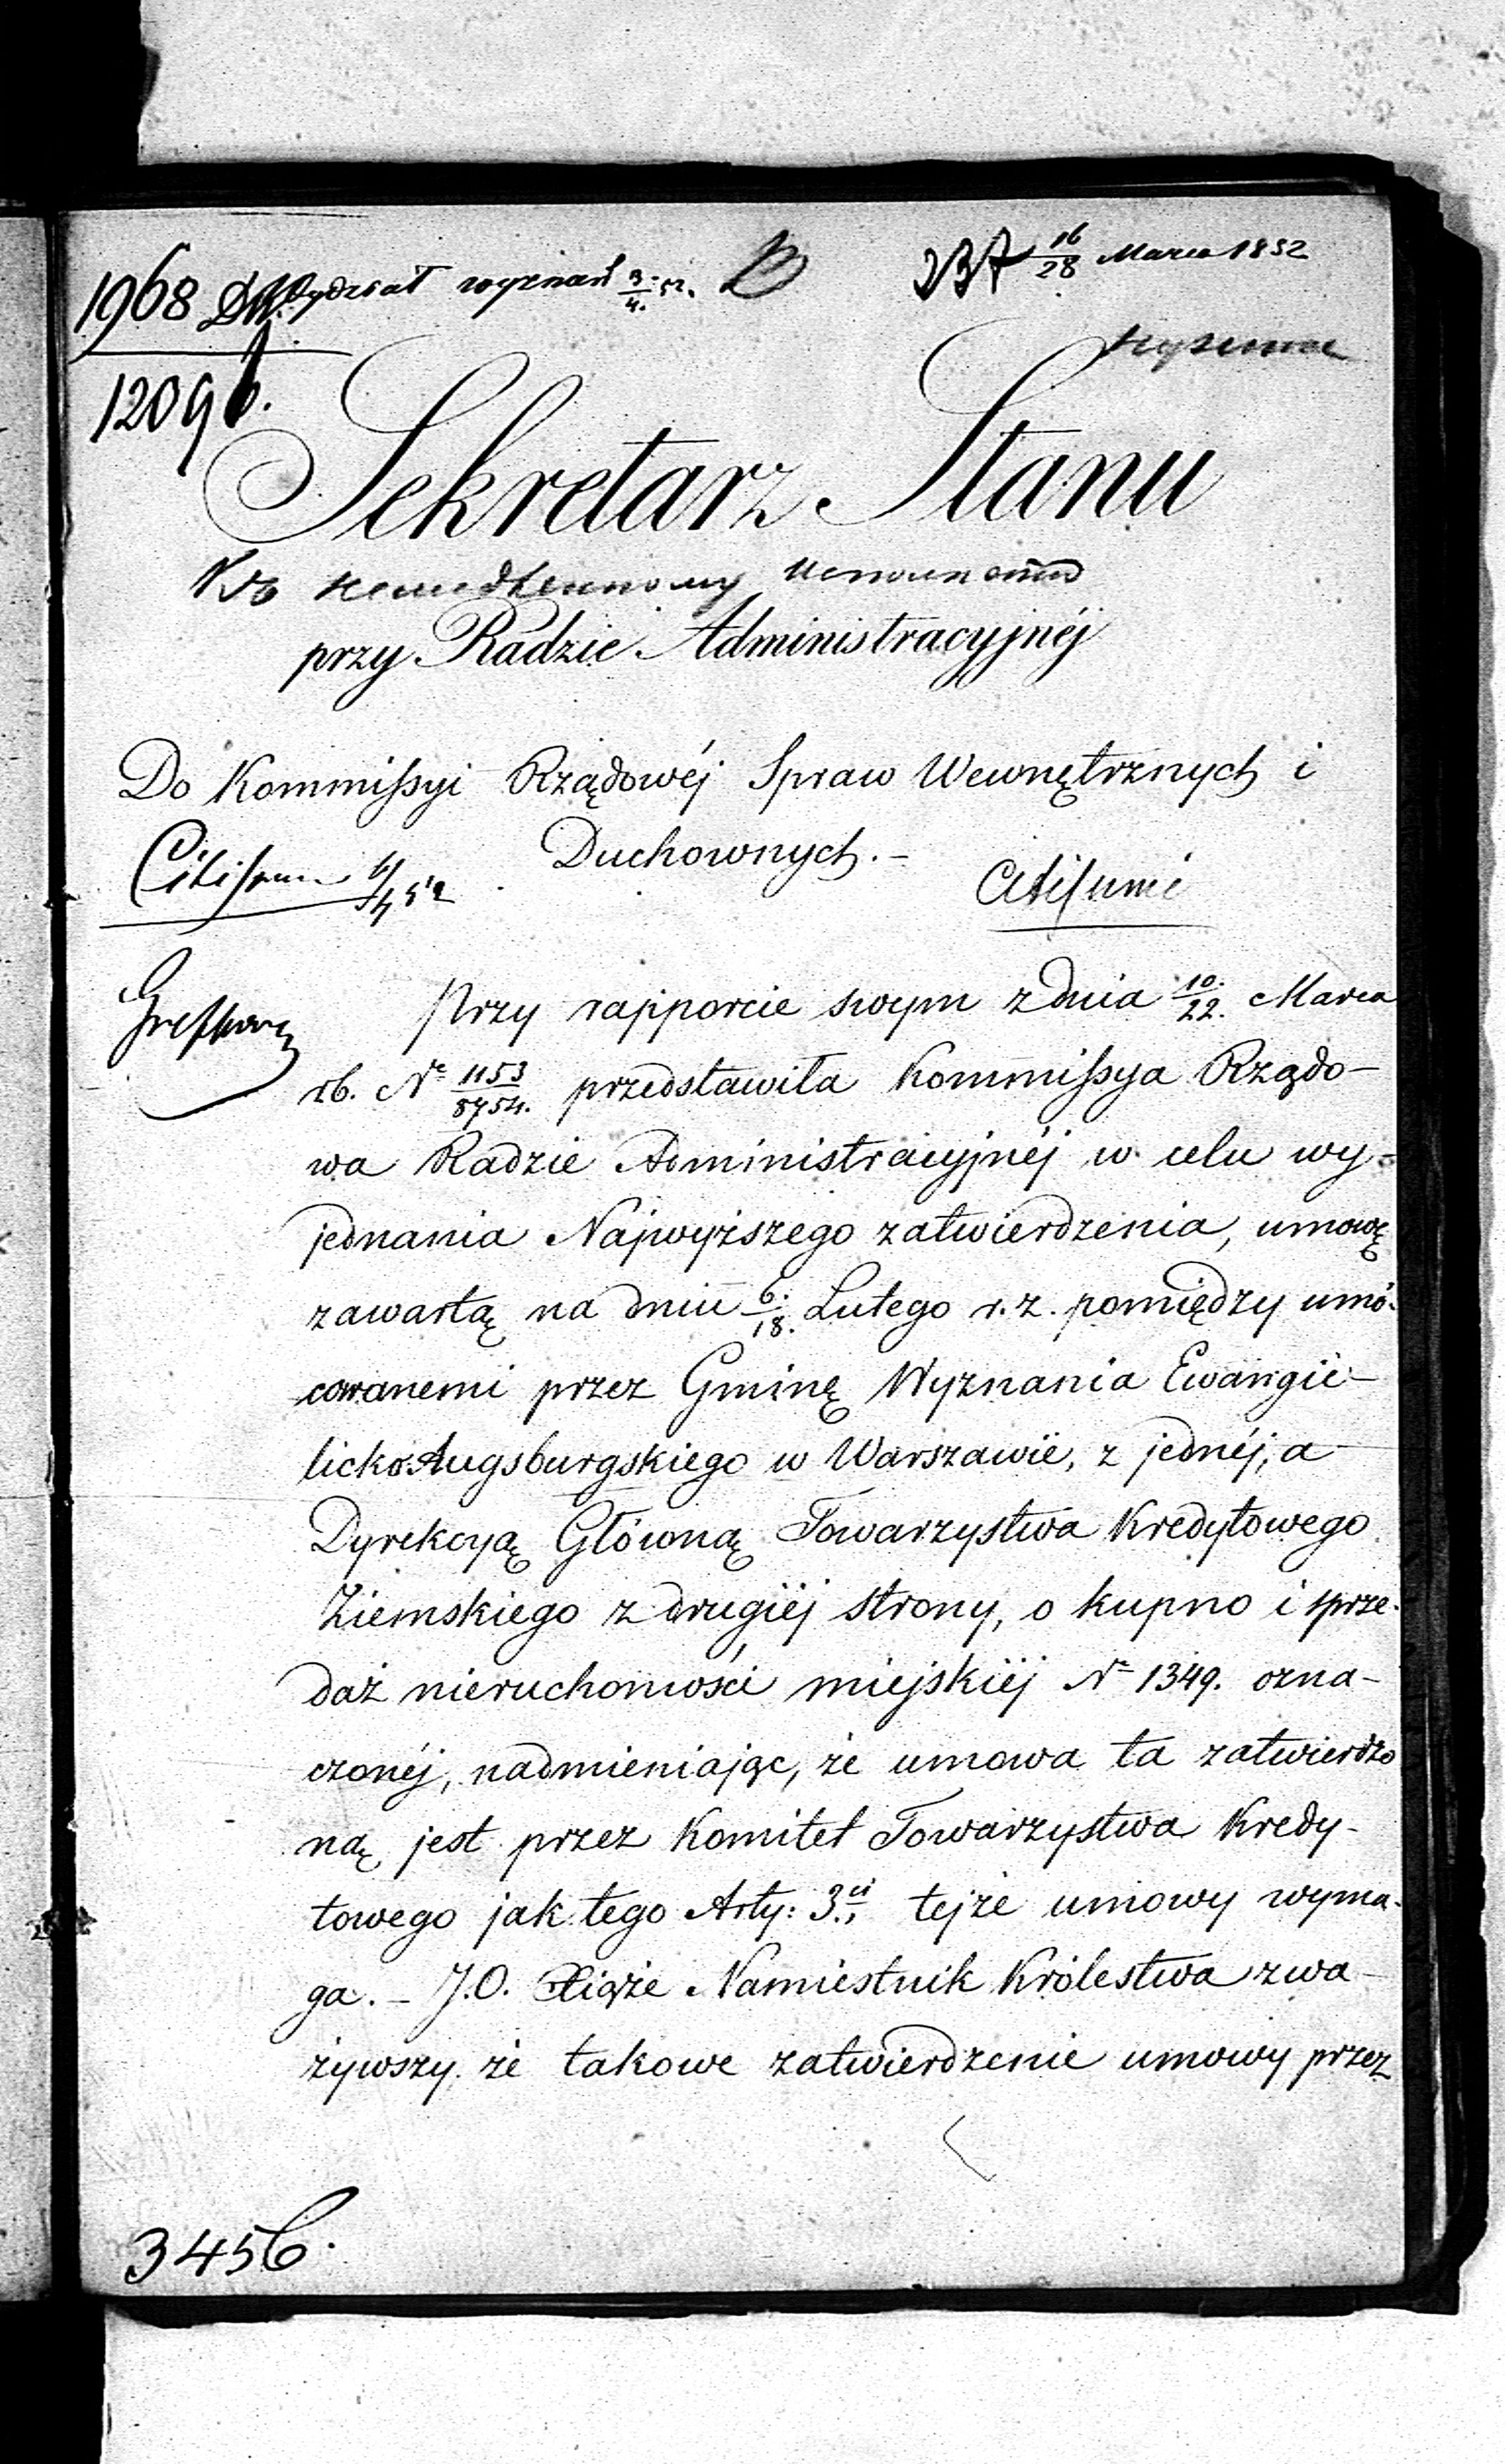 1968 Wydział wyznań 3/4 52. 237 16/28 Marca 1852
12096.
Sekretarz Stanu
Къ немедленному исполнению
przy Radzie Administracyjnéj
Do Kommissyi Rządowéj Spraw Wewnętrznych i
Duchownych. –
Citissime
Citissime
Przy rapporcie swym z dnia 10/22. Marca
rb. No 1153/8754. przedstawiła Kommissya Rządo-
wa Radzie Administracyjnéj w celu wy-
jednania Najwyższego zatwierdzenia, umowę
zawartą na dniu 6/18. Lutego r. z. pomiędzy umó-
cowanemi przez Gminę Wyznania Ewangie-
licko Augsburgskiego w Warszawie, z jednéj, a
Dyrekcyą Główną Towarzystwa Kredytowego
Ziemskiego z drugiéj strony, o kupno i sprze-
daż nieruchomości miejskiéj No 1349. ozna-
czonéj, nadmieniając, że umowa ta zatwierdzo
ną jest przez Komitet Towarzystwa Kredy-
towego jak tego Arty: 3ci, tejże umowy wyma-
ga. – J.O. Xiąże Namiestnik Królestwa zwa-
żywszy że takowe zatwierdzenie umowy przez
3456.